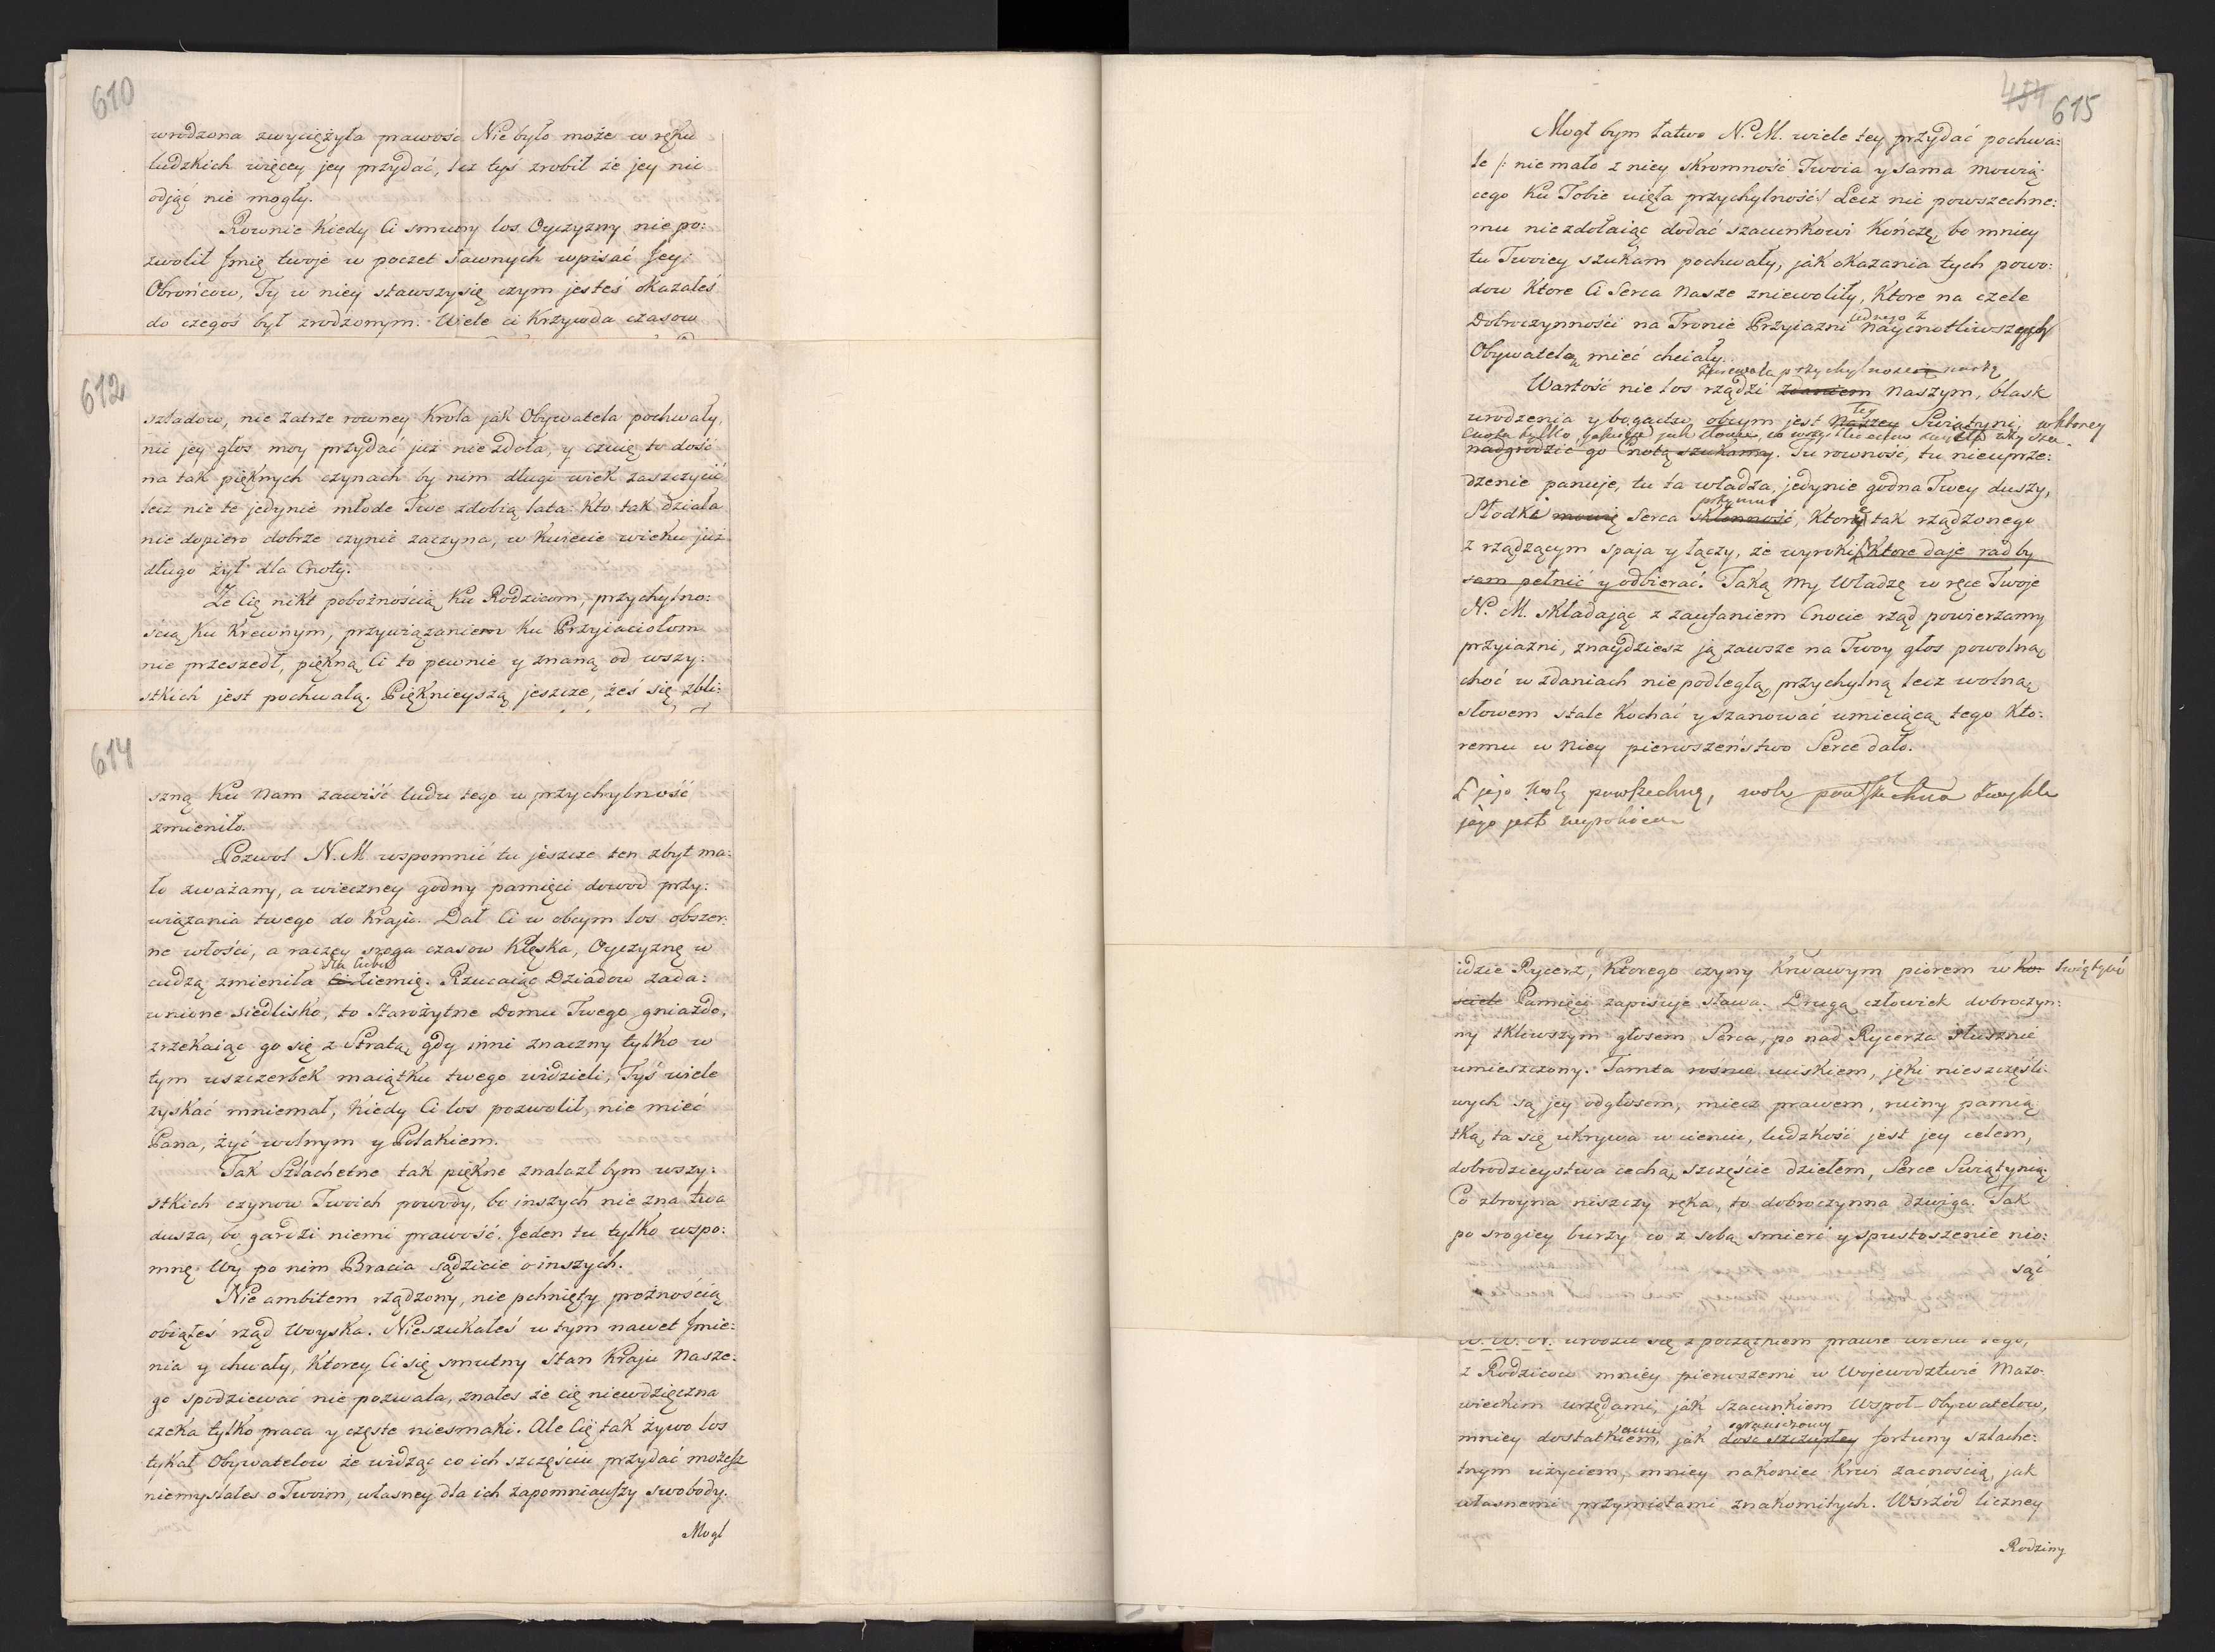 610
wrodzona zwyciężyła prawość Nie było może w ręku
ludzkich więcey jey przydać, lez tyś zrobił że jey nic
odjąć nie mogły.
Rownie kiedy Ci smutny los Oyczyzny nie po:
zwolił Jmię twoje w poczet sławnych wpisać Jey
Obrońcow, Ty w niey stawszy się czym jesteś okazałeś
do czegoś był zrodzonym. Wiele ci Krzywda czasow
612
szladow, nie zatrze rowney Krola jak Obywatela pochwały,
nic jey głos moy przydać już nie zdoła, y czuię to dość
na tak pięknych czynach by nim długi wiek zaszczycić
lecz nie te jedynie młode Twe zdobią lata: Kto tak działa
nie dopiero dobrze czynić zaczyna, w kwiecie wieku już
długo żył dla Cnoty.
Że Cię nikt pobożnością ku Rodzicom, przychylno:
ścią ku Krewnym, przywiązaniem ku Przyiaciołom
nie przeszedł, piękną Ci to pewnie y znaną od wszy:
stkich jest pochwałą. Pięknieyszą jeszcze, żeś się zbli:
614
szną ku nam zawiść ludu tego w przychylność
zmieniło.
Pozwol N. M wspomnić tu jeszcze ten zbyt ma:
ło zważany, a wieczney godny pamięci dowod przy:
wiązania twego do kraju. Dał Ci w obcym los obszer:
ne włości, a raczey sroga czasow klęska, Oyczyznę w
dla Ciebie
cudzą zmieniła Ci Ziemię. Rzucaiąc Dziadow zada:
wnione siedlisko, to Starożytne Domu Twego gniazdo,
zrzekaiąc go się z Stratą, gdy inni znaczny tylko w
tym uszczerbek maiątku twego widzieli, Tyś wiele
zyskać mniemał, kiedy Ci los pozwolił, nie mieć
Pana, żyć wolnym y Polakiem.
Tak Szlachetne tak piękne znalazł bym wszy:
stkich czynow Twoich powody, bo inszych nie zna twa
dusza, bo gardzi niemi prawość. Jeden tu tylko wspo:
mnę. Wy po nim Bracia sądzicie o inszych.
Nie ambitem rządzony, nie pchnięty prożnością
obiąłeś rząd Woyska. Nieszukałeś w tym nawet Jmie:
nia y chwały, ktorey Ci się smutny Stan kraju Nasze:
go spodziewać nie pozwala, znałes że cię niewdzięczna
czeka tylko praca y częste niesmaki. Ale Cię tak żywo los
tykał Obywatelow że widząc co ich szczęściu przydać możesz
niemyślałes o Twoim, własney dla ich zapomniawszy swobody.
Mogł
454 615
Mogł bym łatwo N. M. wiele tey przydać pochwa:
le /: nie mało z niey skromność Twoia y sama mowią:
cego ku Tobie uięła przychylność/ Lecz nic powszechne:
mu niezdołaiąc dodać szacunkowi Kończę, bo mniey
tu Twoiey szukam pochwały, jak okazania tych powo:
dow ktore Ci Serca Nasze zniewoliły, ktore na czele
jednego z
Dobroczynności na Tronie Przyiazni Naycnotliwszych
Obywatela mieć chciały.
przychylnością
Wartość nie los rządzi zdaniem Naszym, blask
tey
urodzenia y bogactw obcym jest Naszey Swiątyni, w ktorey
Cnota tylko
nadgrodzić go Cnotą szukamy. Tu rowność, tu nieuprze:
dzenie panuje, tu ta władza, jedynie godna Twey duszy,
przymus
Słodki mowię Serca skłonność, ktory tak rządzonego
z rządzącym spaja y łączy, że wyroki ktore daje rad by
sam pełnić y odbierać. Taką my Władzę w ręce Twoje
N. M. składając z zaufaniem Cnocie rząd powierzamy
przyiazni, znaydziesz ją zawsze na Twoy głos powolną,
choć w zdaniach niepodległą, przychylną lecz wolną,
słowem stale kochać y szanować umieiącą tego kto:
remu w Niey pierwszeństwo Serce dało.
jego wolą powszechną, wola powszechna zwykle
jego jest
idzie Rycerz, ktorego czyny krwawym piorem w ko: swiątyni
sciele Pamięci zapisuje sława. Drugą człowiek dobroczyn:
ny tkliwszym głosem Serca, po nad Rycerza słusznie
umieszczony. Tamta rośnie uciskiem, jęki nieszczęśli:
wych są jey odgłosem, miecz prawem, ruiny pamią:
tką, ta się ukrywa w cieniu, ludzkość jest jey celem,
dobrodzieystwa cechą, szczęście dziełem, Serce Swiątynią.
Co zbroyna niszczy ręka, to dobroczynna dzwiga. Tak
po srogiey burzy co z sobą smierć y spustoszenie nio:
sąc
urodził się z początkiem prawie wieku tego,
z Rodzicow mniey pierwszemi w Wojewodztwie Mazo:
wieckim urzędami, jak szacunkiem Wspoł-Obywatelow,
ograniczoney
mniey dostatkiem, jak dość szczupłey fortuny szlache:
tnym użyciem, mniey nakoniec krwi zacnością, jak
własnemi przymiotami znakomitych. Wśrzód liczney
Rodziny